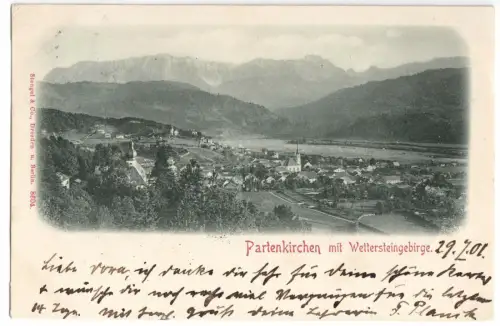 Stengel & Co., Dresden u. Berlin. 8624.
Partenkirchen mit Wettersteingebirge. 29.7.01
Liebe Dora, ich danke dir sehr für deine schöne Karte
+ wünsche dir noch recht viel Vergnügen für die letzten
14 Tage. Mit herzl. Gruß deine Lehrerin F. Planck